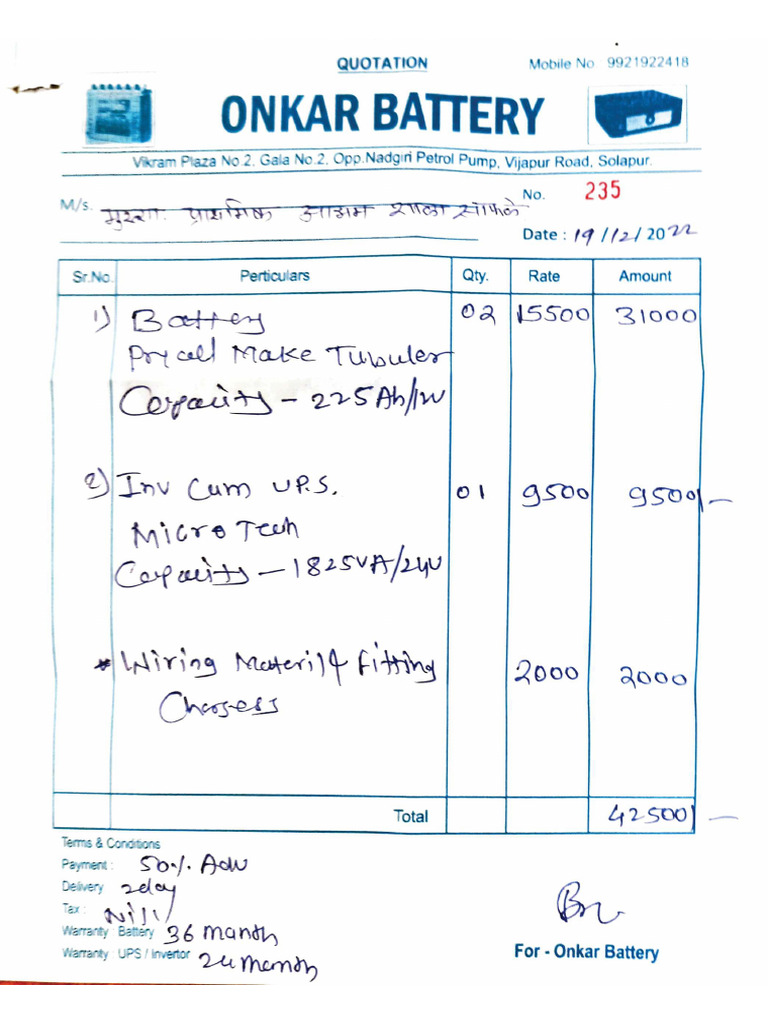 QUOTATION
Mobile No. 9921922418
ONKAR BATTERY
Vikram Plaza No.2, Gala No.2, Opp.Nadgiri Petrol Pump, Vijapur Road, Solapur.
No. 235
M/s. प्राथमिक आश्रम शाला
Date : 19/12/2022
Sr.No. Perticulars Qty. Rate Amount
1) Battery 02 15500 31000
Make Tubuler
Capacity - 225Ah/12V
2) Inv Cum U.P.S. 01 9500 9500/-
Micro Tech
Capacity - 1825VA/24V
* Wiring Materil & Fitting 2000 2000
Chargess
Total 42500/-
Terms & Conditions
Payment : 50% Adv
Delivery 2day
Tax : Nill
Warranty : Battery 36 manth
Warranty : UPS / Invertor 24 manth
For - Onkar Battery